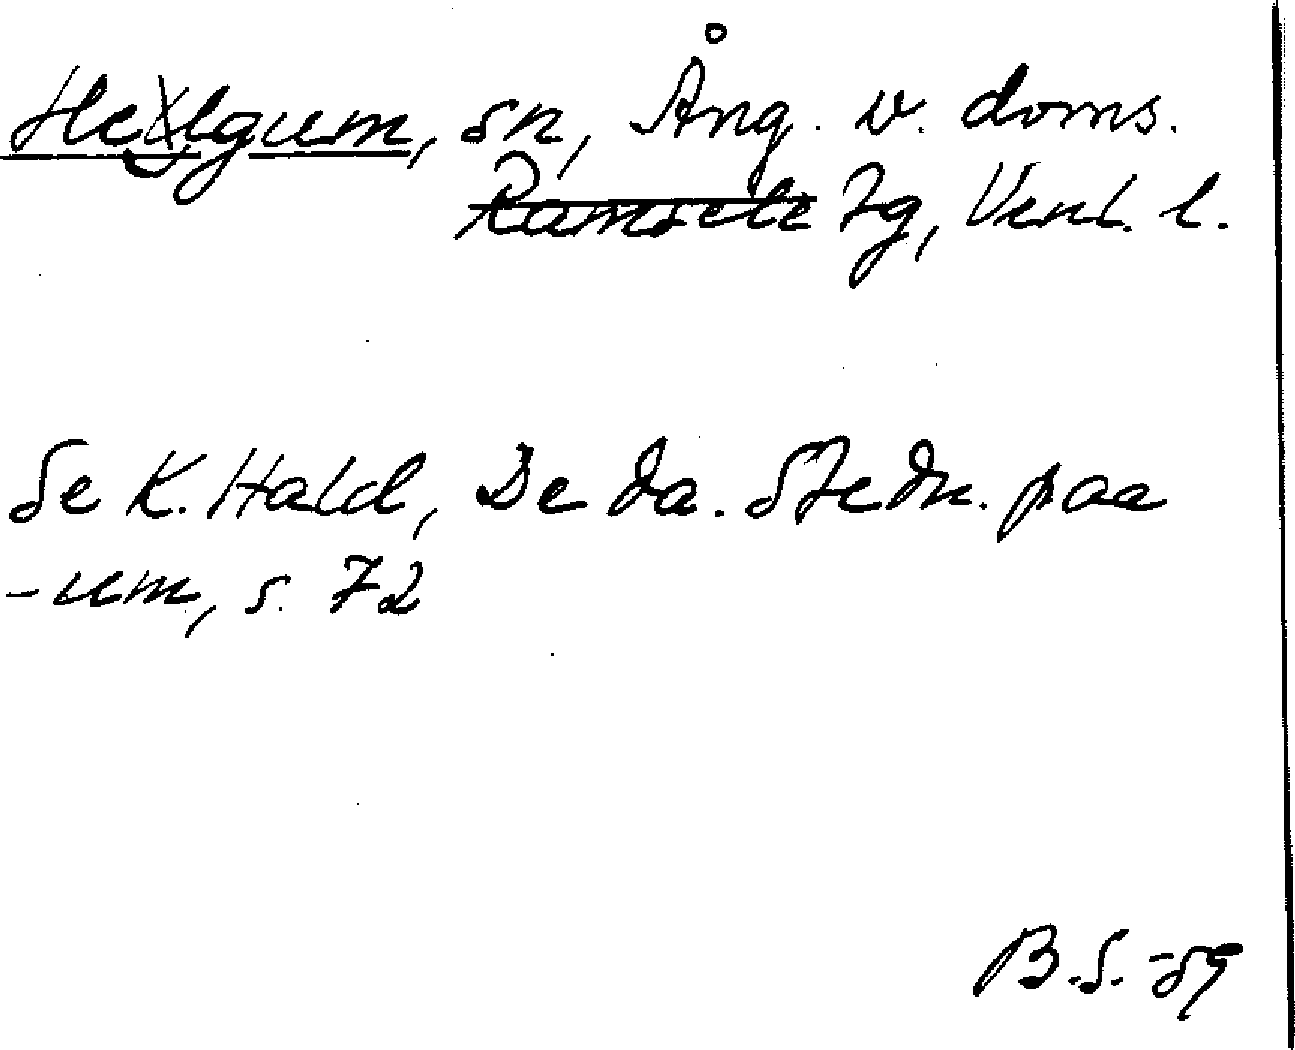 Helgum, sn, Ång. v. doms.
Ramsele tg, Vnl. l.
Se K. Hald, De da. Stedn. paa
-um, s. 72
B.S. -59